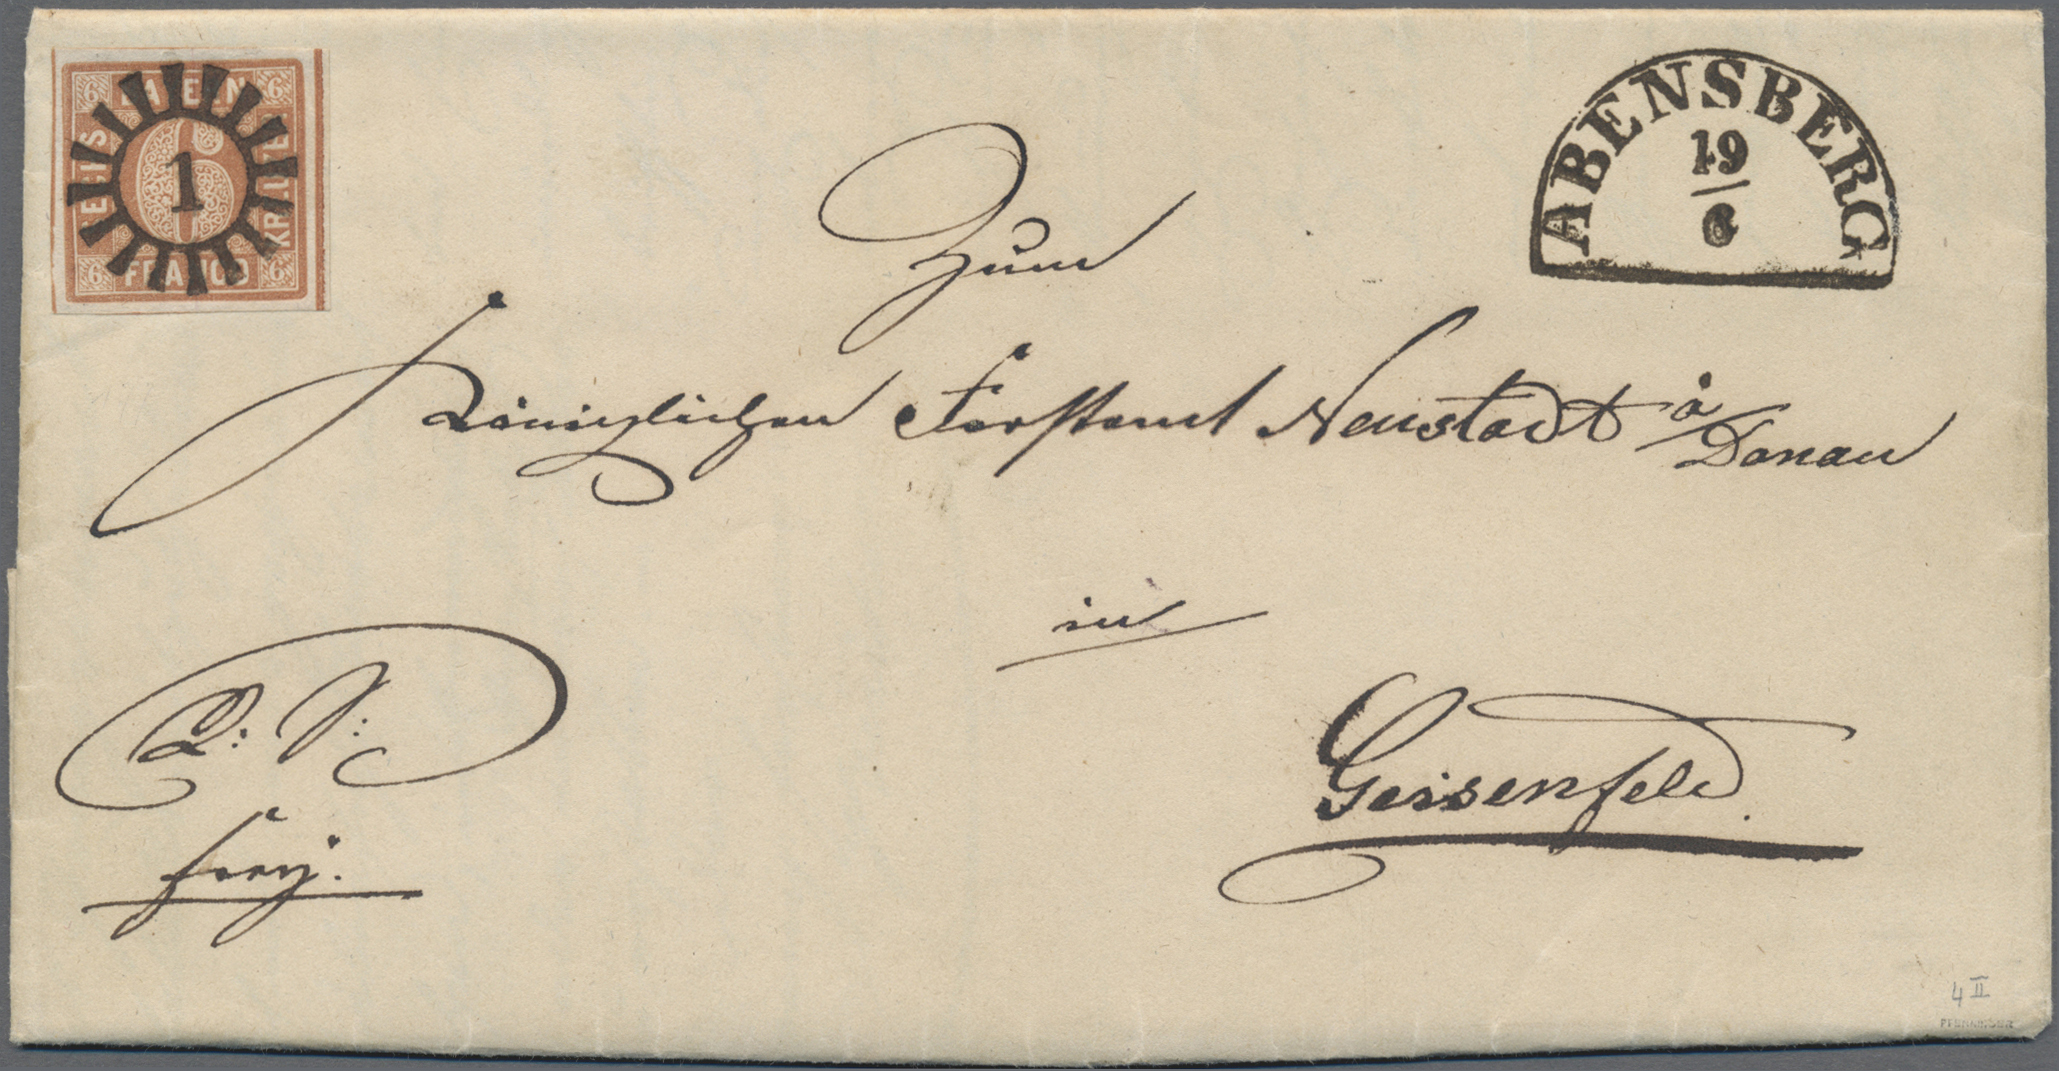 6 BAYERN 6
SECHS
KREUZER
1
6 FRANCO 6
ABENSBERG
19
6
Zum
Königlichen Forstamt Neustadt a/Donau
in
Geisenfeld.
frey.
4 II
PFENNINGER